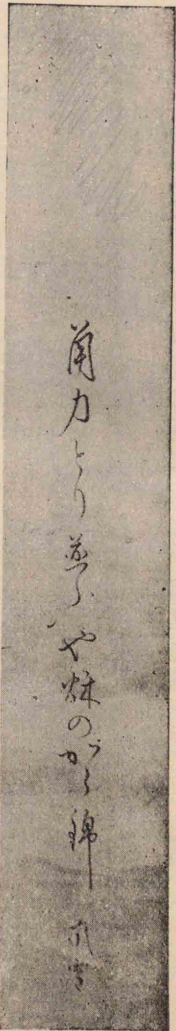 角力とり並ぶや秋のから錦 嵐雪